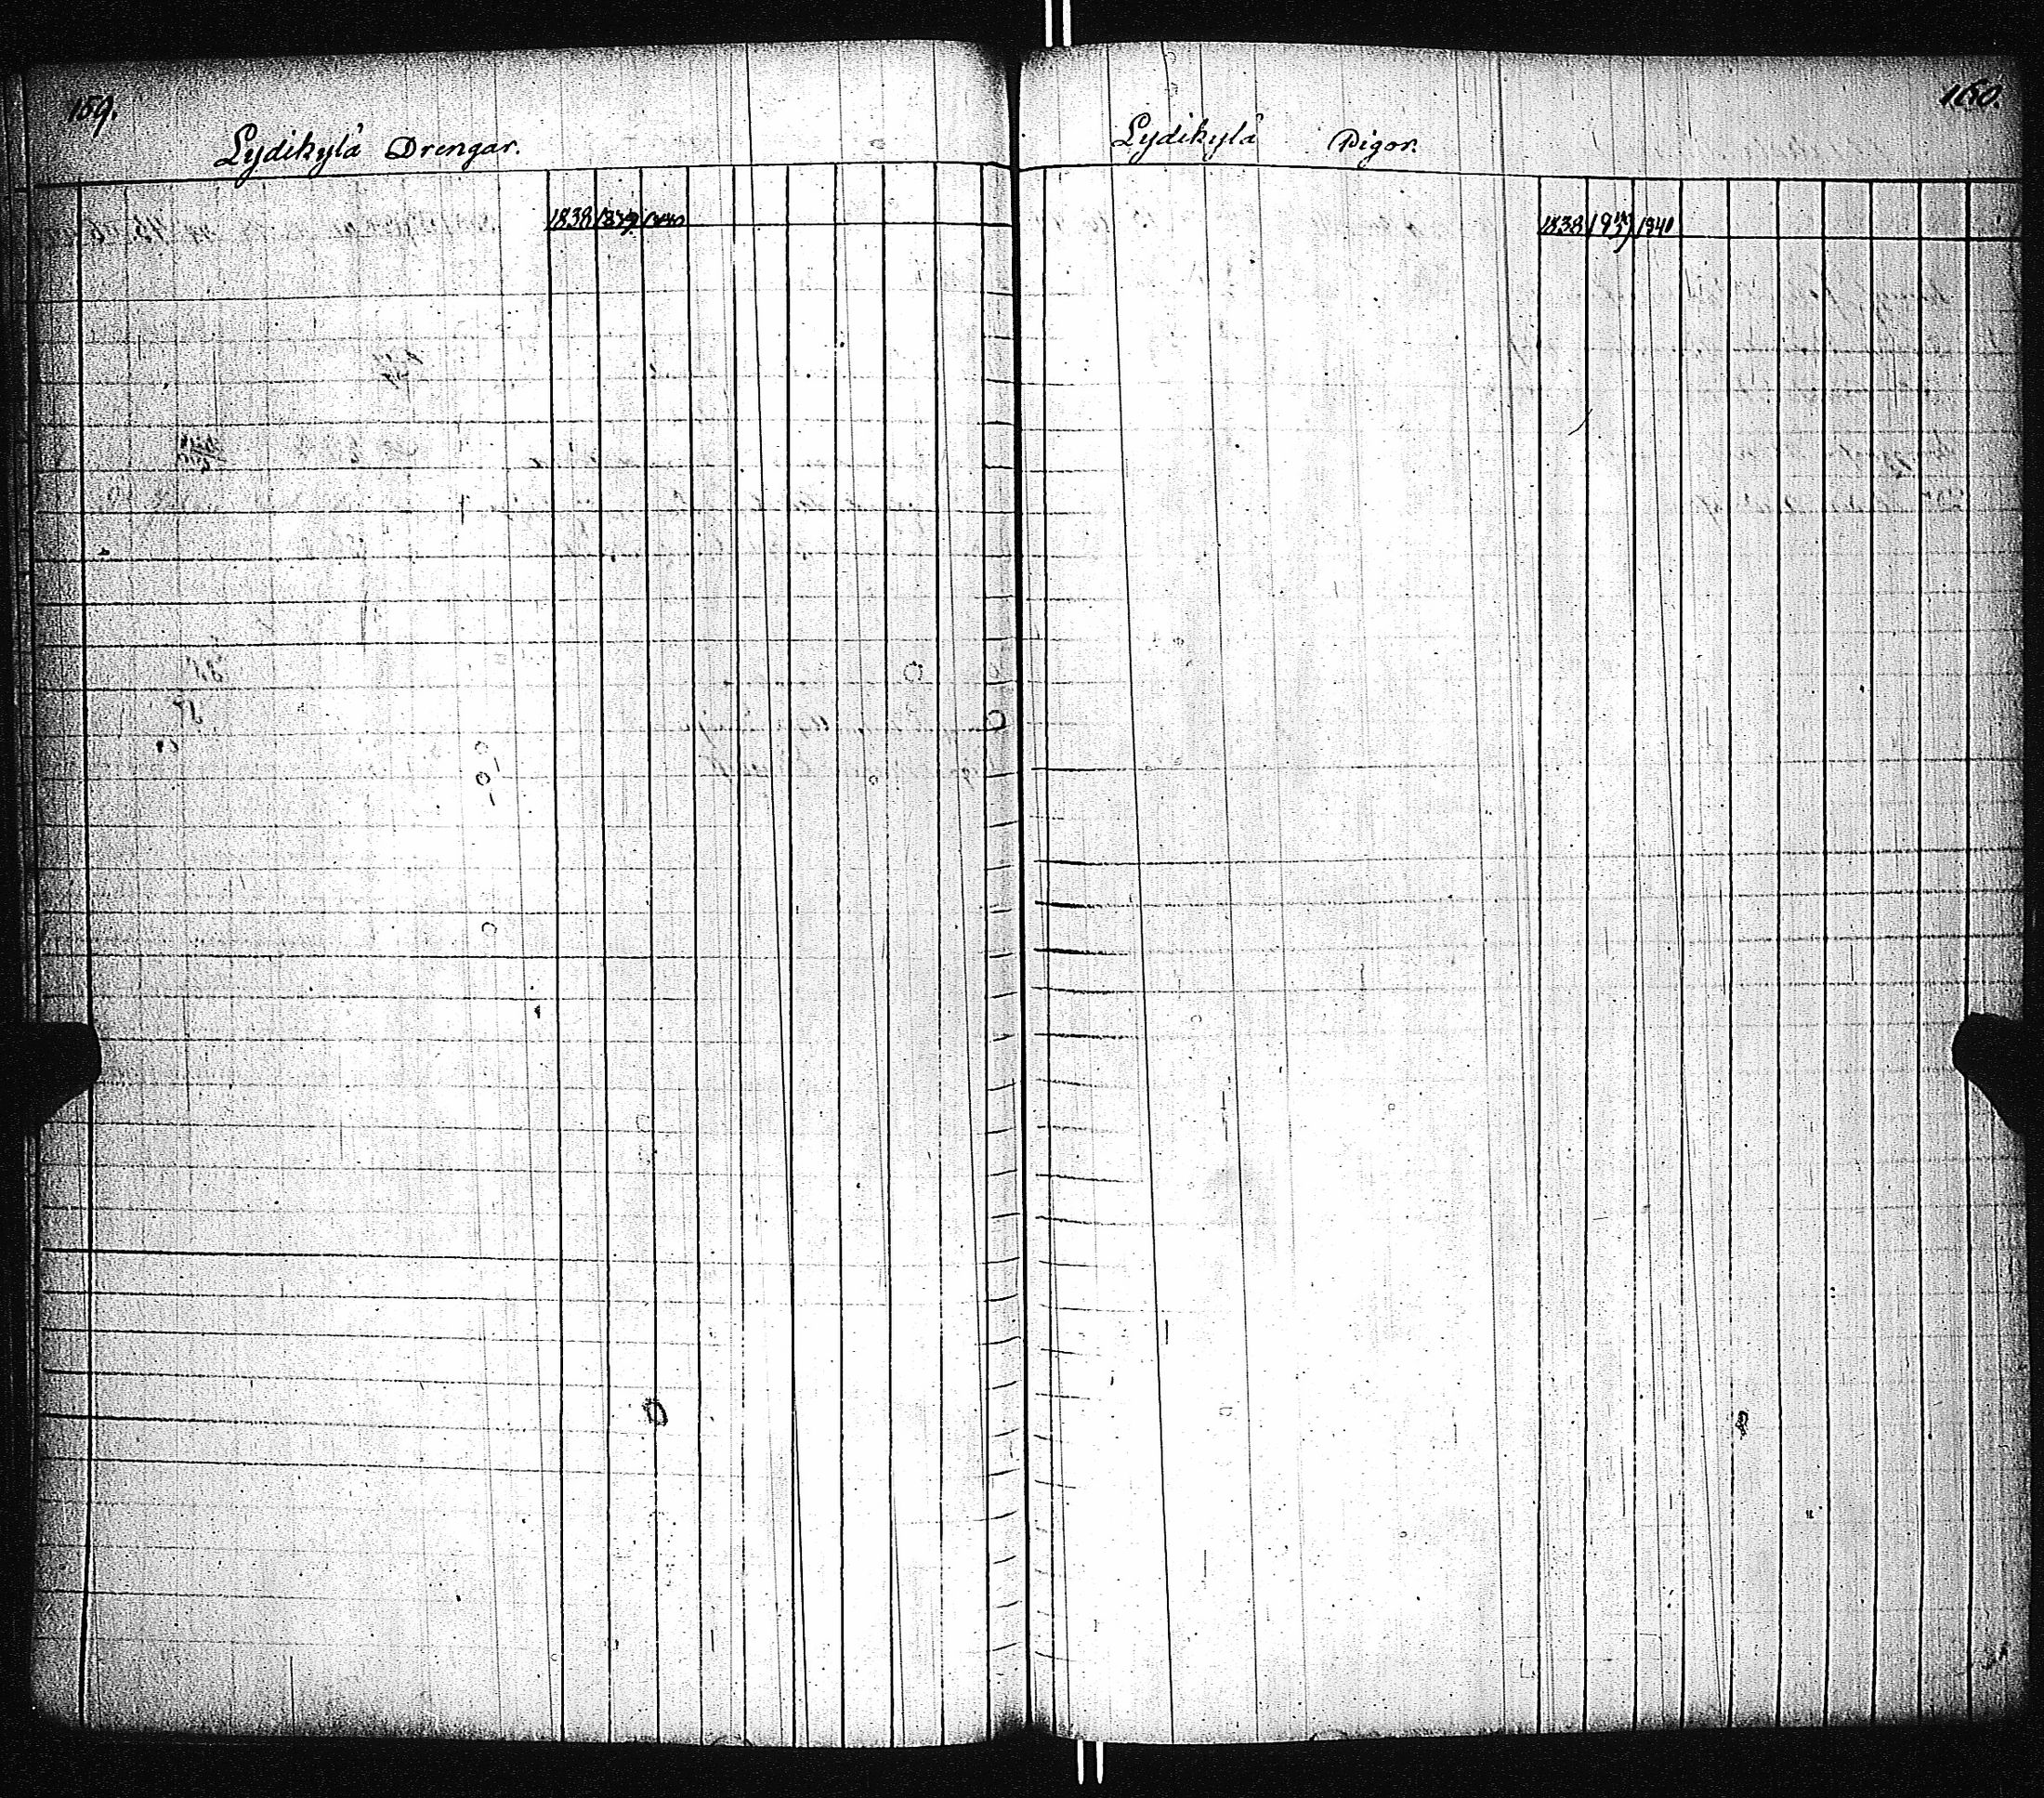 159.
Lydikylä Drengar.
1838 1839 1840
160.
Lydikylä Pigor.
1838 1839 1840